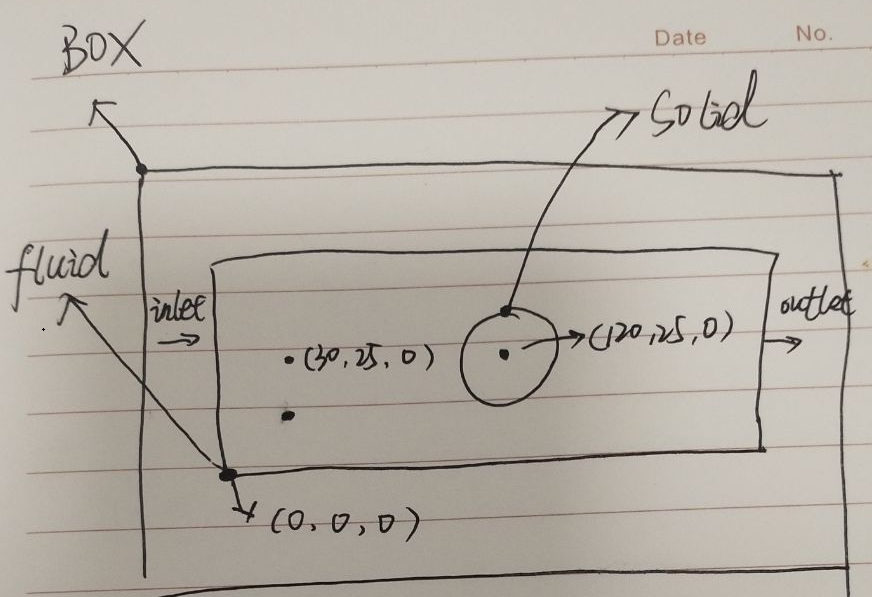 Date No.
BOX
Solid
fluid
inlet
outlet
(30,25,0)
(120,25,0)
(0,0,0)